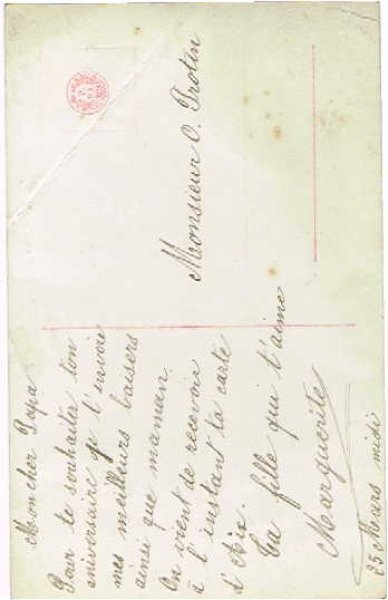 Mon cher Papa
Pour te souhaiter ton
aniversaire je t'envoie
mes meilleurs baisers
ainsi que maman.
On vient de recevoir
à l'instant ta carte
d'Aix.
Ta fille qui t'aime
Marguerite
25 Mars midi
Monsieur O. Protin